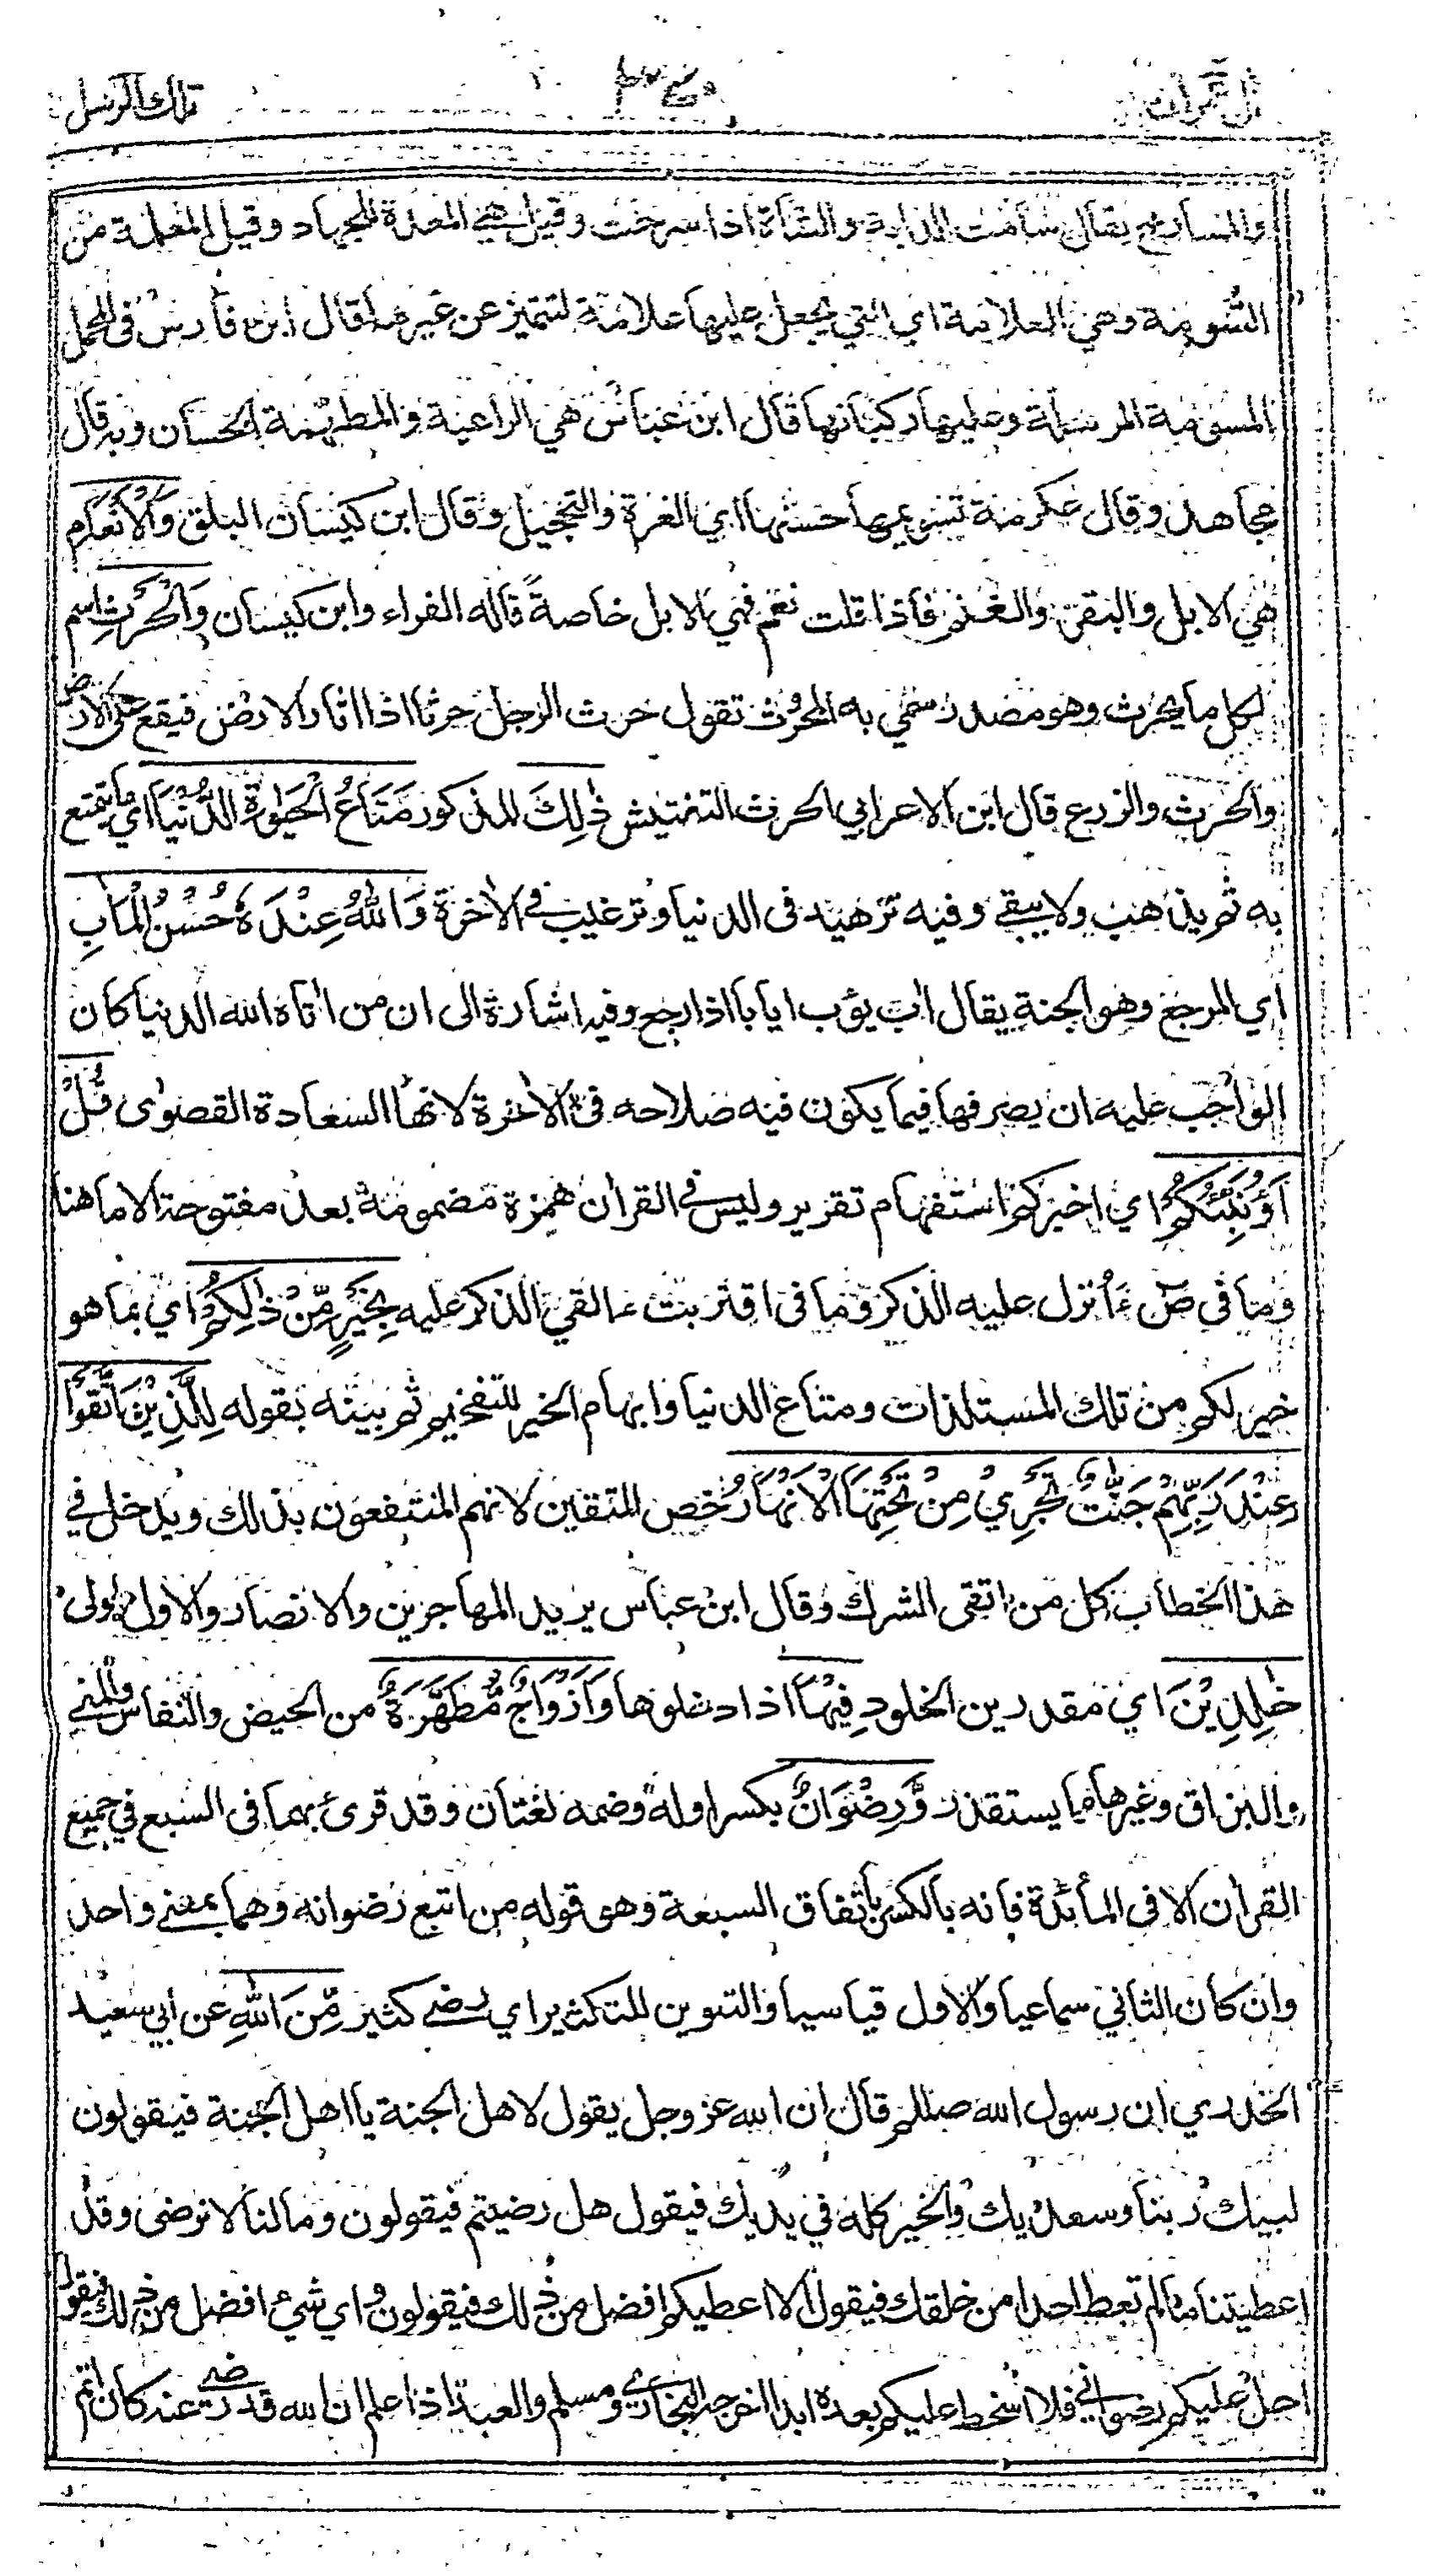 تلك الرسل ال عمران
والمسارح يقال سامت الدابة والشاة اذا سرحت وقيل هي المعدة للجهاد وقيل المعلمة من
السومة وهي العلامة اي التي يجعل عليها علامة لتتميز عن غيرها قال ابن فارس في المجمل
المسومة المرسلة وعليها ركبانها قال ابن عباس هي الراعية والمطهمة الحسان وبه قال
مجاهد وقال عكرمة تسويمها حسنها اي الغرة والتحجيل وقال ابن كيسان البلق وَالْأَنْعَامِ
هي الابل والبقر والغنم فاذا قلت نعم فهي الابل خاصةً قاله الفراء وابن كيسان وَالْحَرْثِ اسم
لكل ما يحرث وهو مصدر سمي به المحرث تقول حرث الرجل حرثا اذا اثار الارض فيقع على الارض
والحرث والزرع قال ابن الاعرابي الحرث التفتيش ذٰلِكَ المذكور مَتَاعُ الْحَيٰوةِ الدُّنْيَا اي ما يتمتع
به ثم يذهب ولا يبقى وفيه تزهيد في الدنيا وترغيب في الاٰخرة وَاللّٰهُ عِنْدَهٗ حُسْنُ الْمَاٰبِ
اي المرجع وهو الجنة يقال اٰب يؤب ايابا اذا رجع وفيه اشارة الى ان من اٰتاه الله الدنيا كان
الواجب عليه ان يصرفها فيما يكون فيه صلاحه في الاٰخرة لانها السعادة القصوٰى قُلْ
اَؤُنَبِّئُكُمْ اي اخبركم استفهام تقرير وليس في القراٰن همزة مضمومة بعد مفتوحة الا ما هنا
وما في صٓ ءَاُنزل عليه الذكر وما في اقتربت ءالقي الذكر عليه بِخَيْرٍ مِّنْ ذٰلِكُمْ اي بما هو
خير لكم من تلك المستلذات ومتاع الدنيا وابهام الخير للتفخيم ثم بينه بقوله لِلَّذِيْنَ اتَّقَوْا
عِنْدَ رَبِّهِمْ جَنّٰتٌ تَجْرِيْ مِنْ تَحْتِهَا الْاَنْهَارُ خص المتقين لانهم المنتفعون بذلك ويدخل في
هذا الخطاب كل من اتقى الشرك وقال ابن عباس يريد المهاجرين والانصار والاول اولى
خٰلِدِيْنَ اي مقدرين الخلود فِيْهَا اذا دخلوها وَاَزْوَاجٌ مُّطَهَّرَةٌ من الحيض والنفاس والمني
والبزاق وغيرها مما يستقذر وَّرِضْوَانٌ بكسر اوله وضمه لغتان وقد قرئ بهما في السبع في جميع
القراٰن الا في المائدة فانه بالكسر باتفاق السبعة وهو قوله من اتبع رضوانه وهما بمعنى واحد
وان كان الثاني سماعيا والاول قياسيا والتنوين للتكثير اي رضى كثير مِّنَ اللّٰهِ عن ابي سعيد
الخدري ان رسول الله صللم قال ان الله عز وجل يقول لاهل الجنة يا اهل الجنة فيقولون
لبيك ربنا وسعديك والخير كله في يديك فيقول هل رضيتم فيقولون وما لنا لا نرضى وقد
اعطيتنا ما لم تعط احدا من خلقك فيقول الا اعطيكم افضل من ذلك فيقولون واي شيء افضل من ذلك فيقول
احل عليكم رضواني فلا اسخط عليكم بعده ابدا اخرجه البخاري ومسلم والعبد اذا علم ان الله قد رضي عنه كان اتم